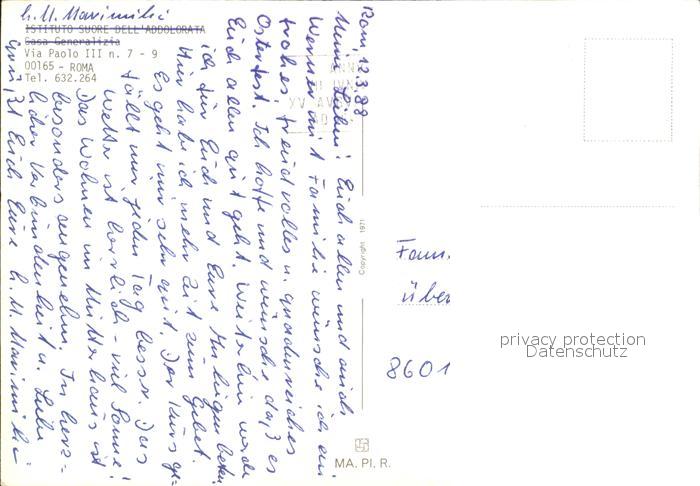 h. M. Maximilia
ISTITUTO SUORE DELL'ADDOLORATA
Casa Generalizia
Via Paolo III n. 7 - 9
00165 - ROMA
Tel. 632.264
Rom, 12.3.88
Meine Lieben! Euch allen und auch
Werner mit Familie wünsche ich ein
frohes, freudvolles u. gnadenreiches
Osterfest. Ich hoffe und wünsche, daß es
Euch allen gut geht. Weiterhin werde
ich für Euch und Eure Anliegen beten.
Hier habe ich mehr Zeit zum Gebet.
Es geht mir sehr gut. Der Kurs ge-
fällt mir jeden Tag besser. Das
Wetter ist herrlich - viel Sonne!
Das Wohnen im Mutterhaus ist
besonders angenehm. In herz-
licher Verbundenheit u. Liebe
grüßt Euch Eure h. M. Maximilia
Copyright 1971
Fam.
über
8601
privacy protection
Datenschutz
MA. PI. R.